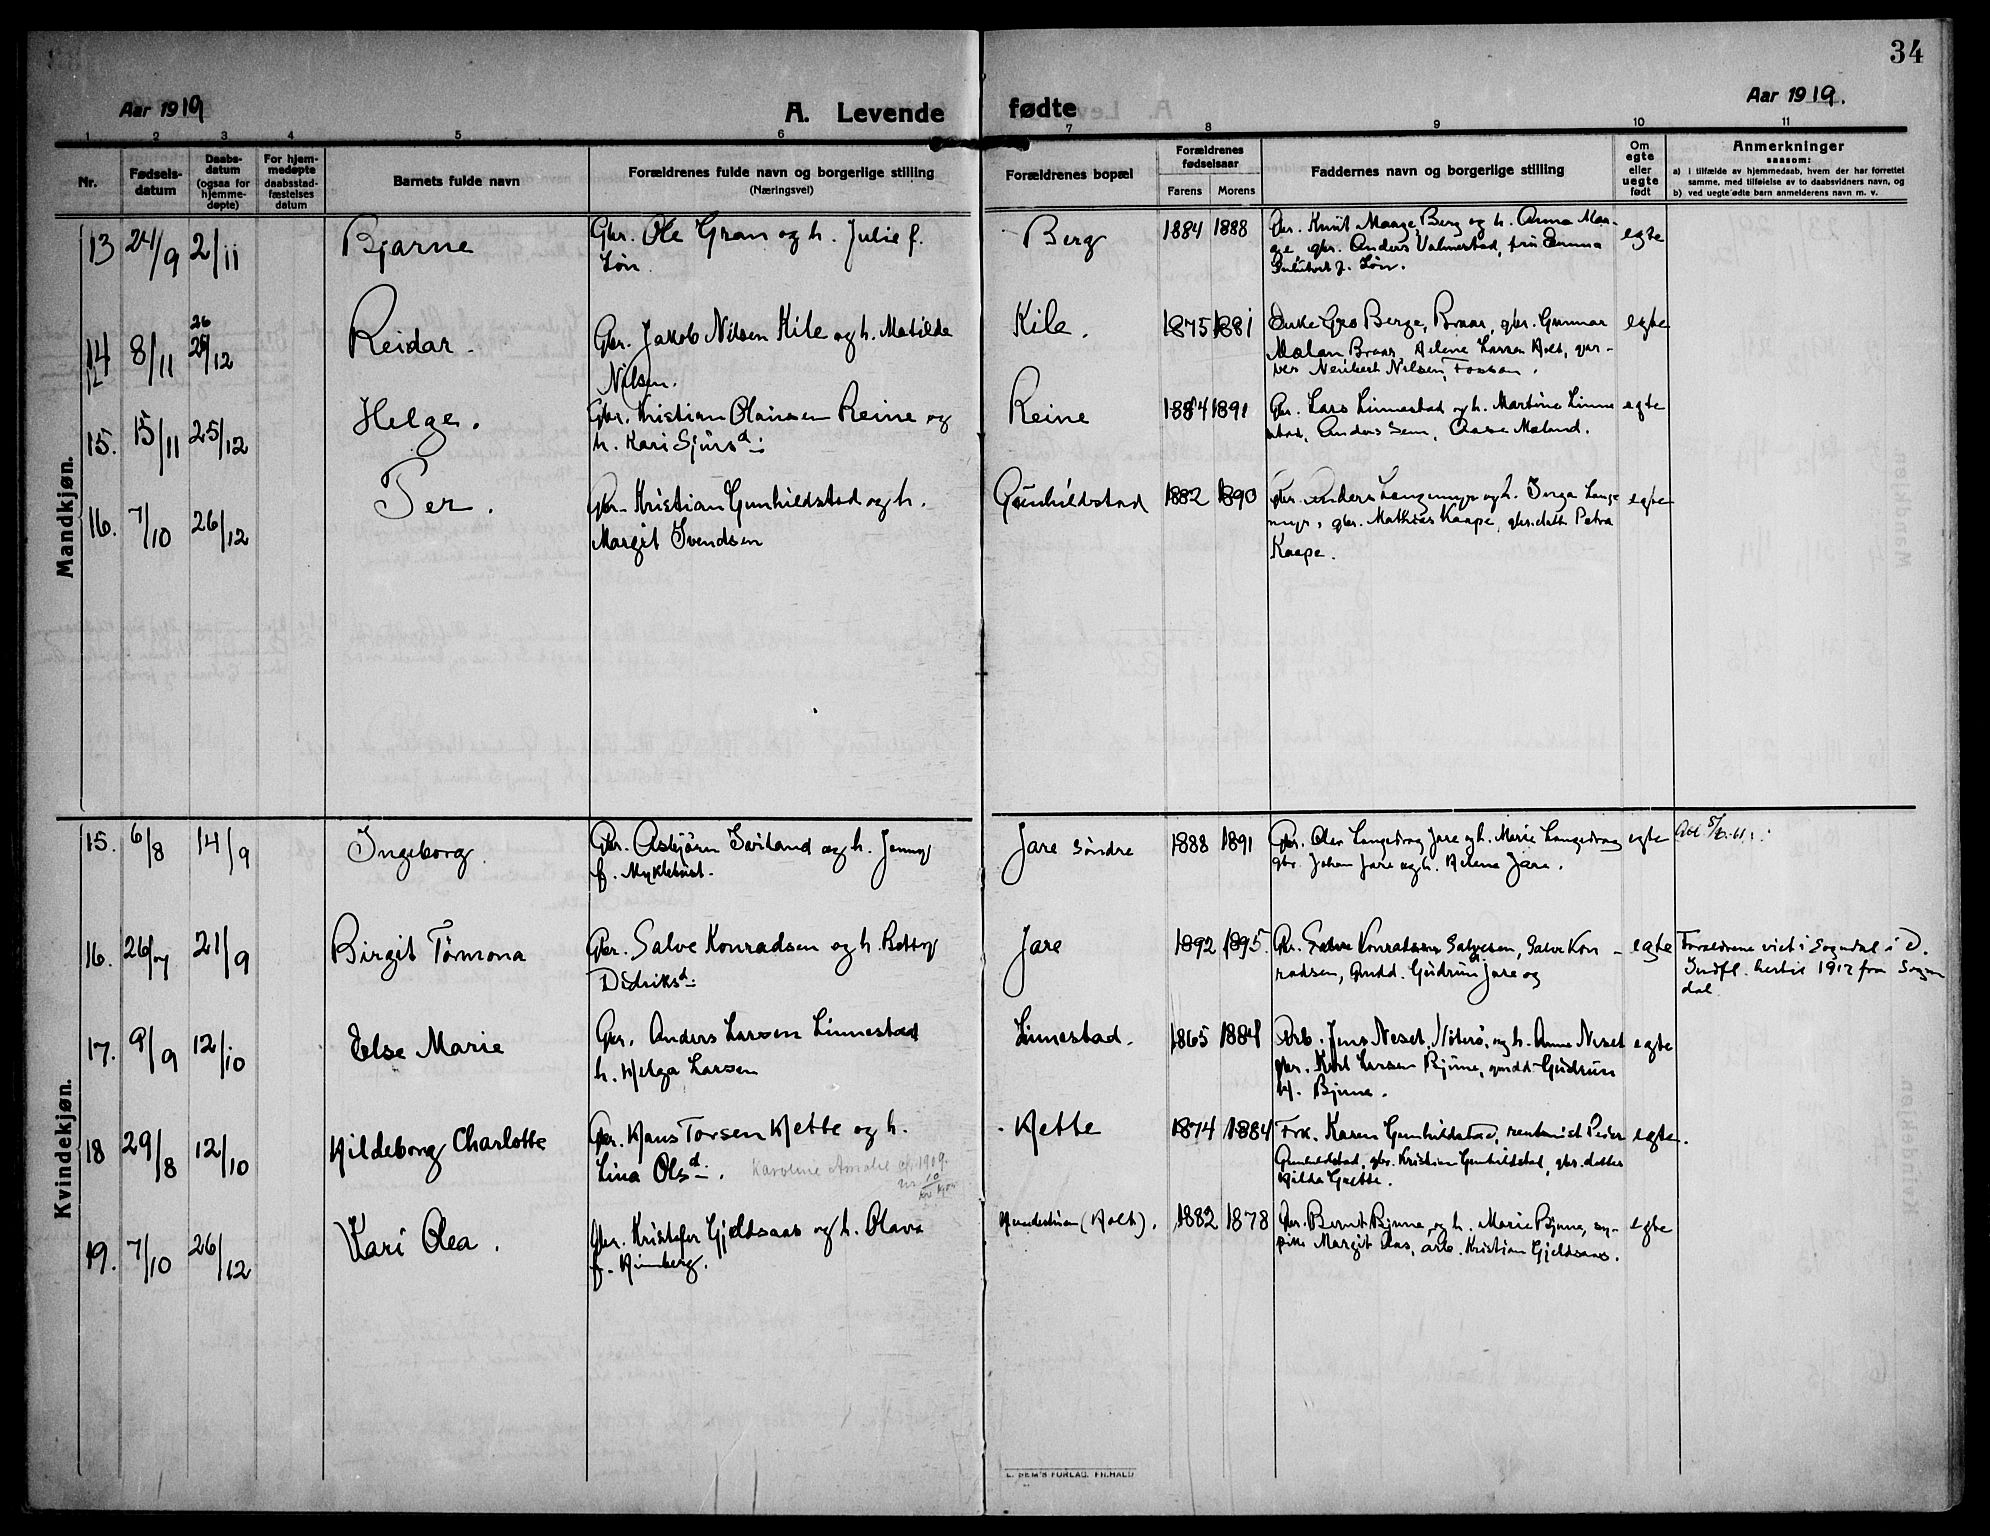 34
Aar 1919
A. Levende fødte
Aar 1919.
1 2 3 4 5 6 7 8 9 10 11
Nr.
Fødsels-
datum
Daabs-
datum
(ogsaa for
hjemme-
døpte)
For hjem-
medøpte
daabsstad-
fæstelses
datum
Barnets fulde navn
Forældrenes fulde navn og borgerlige stilling
(Næringsvei)
Forældrenes bopæl
Forældrenes
fødselsaar
Farens Morens
Faddernes navn og borgerlige stilling
Om
egte
eller
uegte
født
Anmerkninger
saasom:
a) i tilfælde av hjemmedaab, hvem der har forrettet
samme, med tilføielse av to daabsvidners navn, og
b) ved uegte ødte barn anmelderens navn m. v.
Mandkjøn.
13 24/9 2/11 Bjarne Gbr. Ole Gran og h. Julie f. Berg 1884 1888 Gbr. Knut Maage, Berg og h. Anna Maa- egte
Løn ge, gbr. Anders Valmestad, fru Emma
f. Løn.
14 8/11 26/12 Reidar. Gbr. Jakob Nilsen Kile og h. Matilde Kile. 1875 1881 Enke Gro Berge, Braar, gbr. Gunnar egte
Nilsen. Mælan, Braar, Helene Larsen Holt, gbr-
Nilsen,
15. 15/11 25/12 Helge. Gbr. Kristian Olaisen Reine og Reine 1884 1891 Gbr. Lars Linnestad og h. Martine Linne egte
h. Kari Sjursd: stad, Anders Sem, Aase Mæland.
16. 7/10 26/12 Per. Gbr. Kristian Gunhildstad og h. Gunhildstad 1882 1890 Gbr. Anders Langemyr og h. Inga Lange egte
Margit Svendsen myr, gbr. Mathias Kaape, gbr.datt. Petra
Kaape.
Kvindekjøn.
15. 6/8 14/9 Ingeborg. Gbr. Asbjørn Sviland og h. Jenny Jare søndre 1888 1891 Gbr. Olav Langedrag Jare og h. Marie Langedrag egte
f. Myklebust. gbr. Johan Jare og h. Helene Jare.
16. 26/7 21/9 Birgit Tomona Gbr. Salve Konradsen og h. Betty Jare 1892 1895. Gbr. Salve Konradsen Salvesen, Salve Kon- egte Forældrene viet i Sogndal i D.
Didriksd: radsen, gmdd. Gudrun Jare og Indfl. hertil 1917 fra Sogn
dal.
17. 9/9 12/10 Else Marie Gbr. Anders Larsen Linnestad Linnestad. 1865 1884 Arb. Jens Neset, Nøterø, og h. Anna Neset egte
h. Helga Larsen gbr. Karl Larsen Bjune, gmdd. Gudrun
Bjune.
18 29/8 12/10 Hildeborg Charlotte Gbr. Hans Torsen Hette og h. Hette 1874 1884 Frk. Karen Gunhildstad, rentenist Peder egte.
Lina Olsd:. Karoline Amalie 1909. Gunhildstad, gbr. Kristian Gunhildstad, gbr. datter
nr 10 Hilda Grette.
19. 7/10 26/12 Kari Olea. Gbr. Kristofer Gjeldsaas og h. Olava (Holt). 1882 1878 Gbr. Bernt Bjune og h. Marie Bjune, sy- egte
f. Himberg. pike Margit Aas, arb. Kristian Gjeldsaas.
E. SEM'S FORLAG. FR.HALD